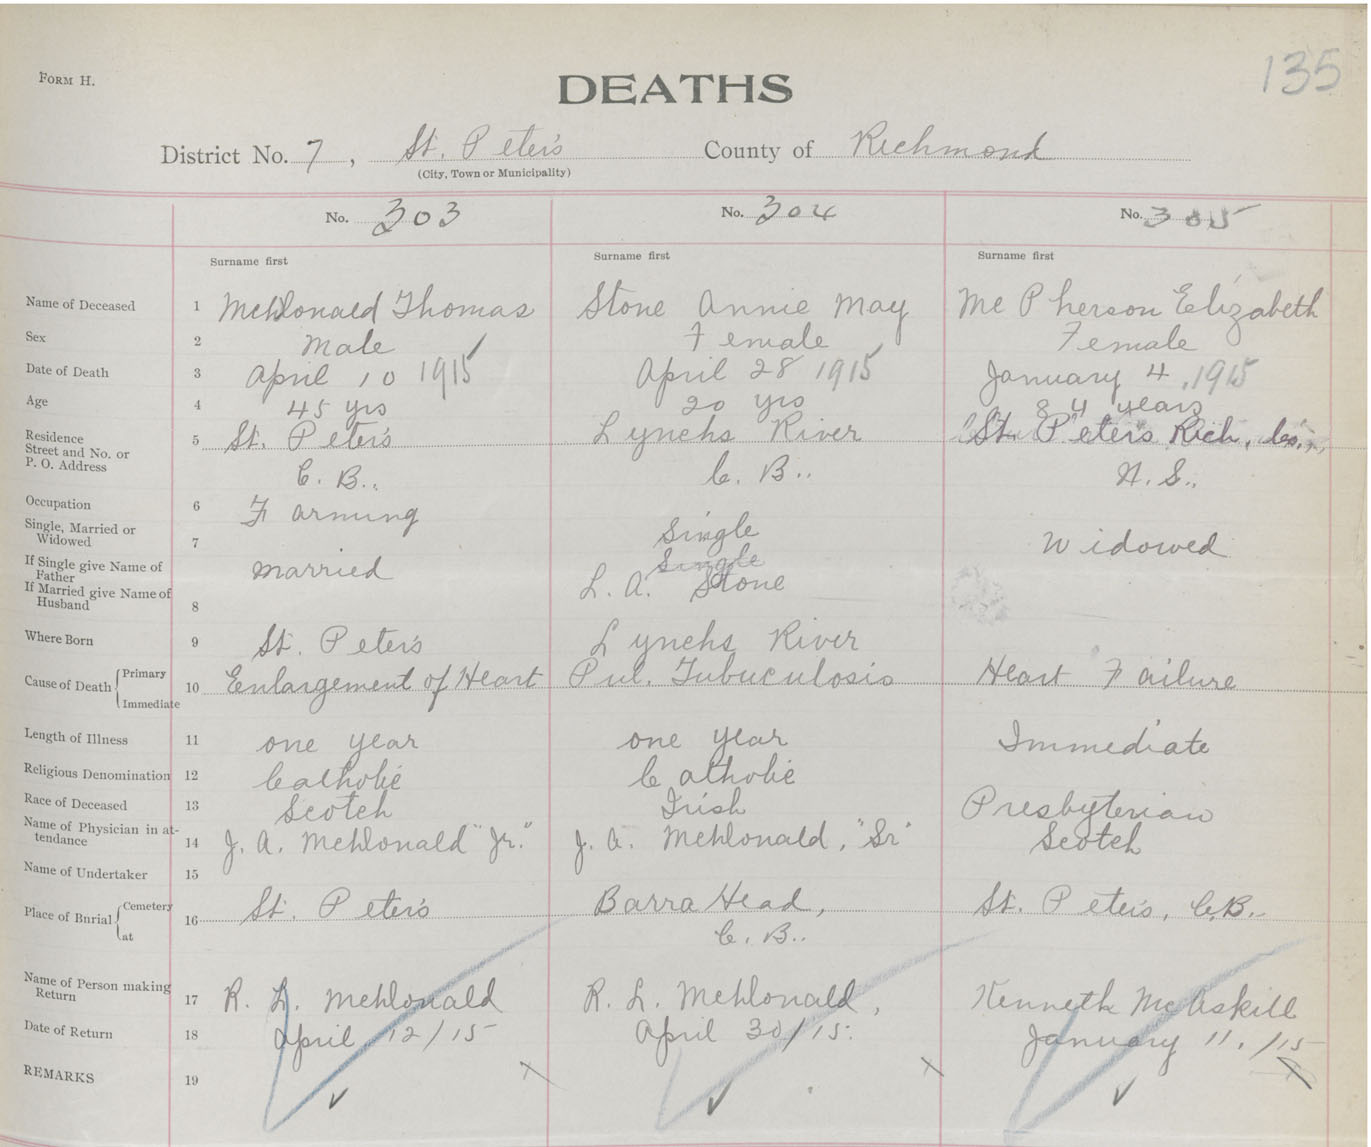 FORM H.
DEATHS
135
District No. 7, St. Peter's County of Richmond
(City, Town or Municipality)
No. 303 No. 304 No. 305
Surname first Surname first Surname first
Name of Deceased 1 McDonald Thomas Stone Annie May McPherson Elizabeth
Sex 2 Male Female Female
Date of Death 3 April 10 1915 April 28 1915 January 4, 1915
Age 4 45 yrs 20 yrs 84 years
Residence Street and No. or P. O. Address 5 St. Peter's Lynchs River St. Peter's Rich. Co.,
C. B.. C. B.. N. S..
Occupation 6 Farming
Single, Married or Widowed 7 married Single Widowed
Single
If Single give Name of Father
If Married give Name of Husband 8 L. A. Stone
Where Born 9 St. Peter's Lynchs River
Cause of Death Primary Immediate 10 Enlargement of Heart Pul. Tubuculosis Heart Failure
Length of Illness 11 one year one year Immediate
Religious Denomination 12 Catholic Catholic Presbyterian
Race of Deceased 13 Scotch Irish Scotch
Name of Physician in attendance 14 J. A. McDonald "Jr." J. A. McDonald, "Sr"
Name of Undertaker 15
Place of Burial Cemetery at 16 St. Peter's Barra Head, St. Peter's, C.B..
C. B..
Name of Person making Return 17 R. L. McDonald R. L. McDonald, Kenneth McAskill
Date of Return 18 April 12/15 April 30/15. January 11./15
REMARKS 19